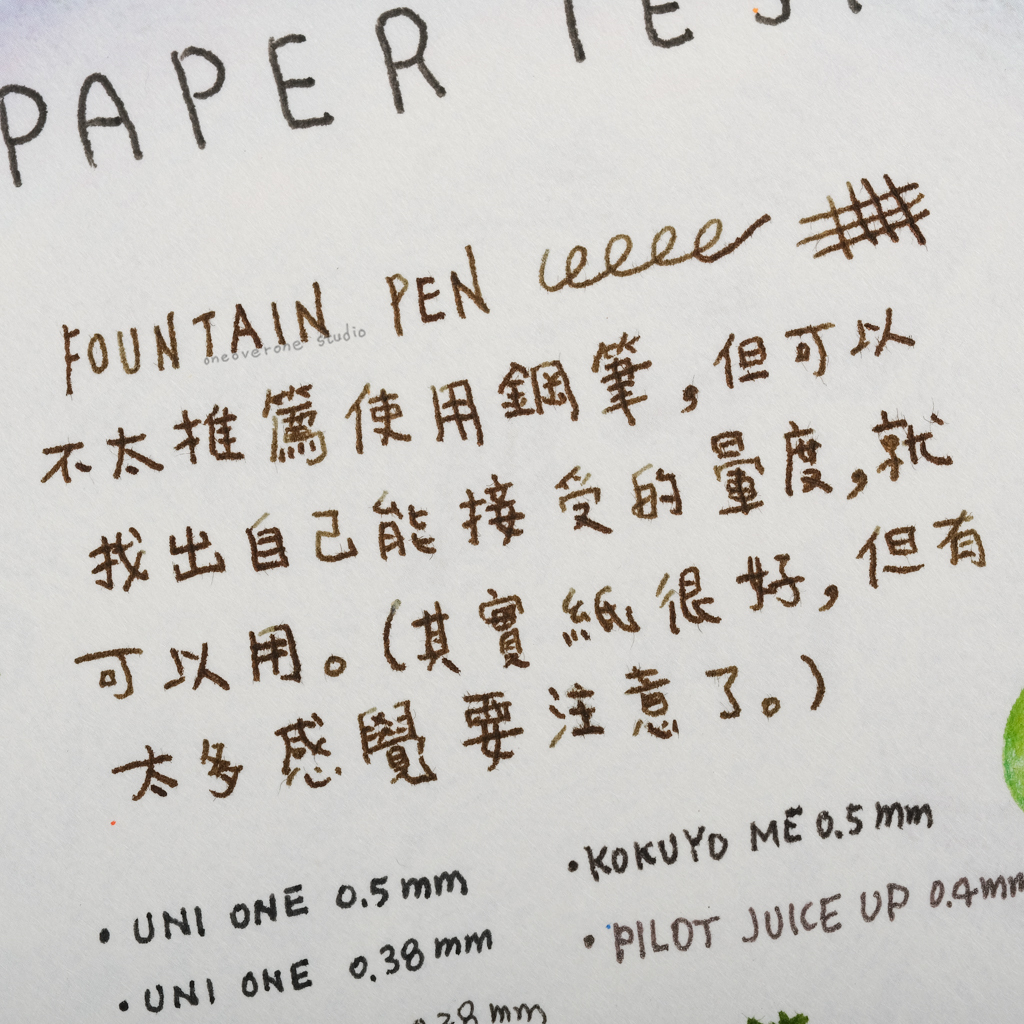 PAPER TEST
FOUNTAIN PEN
oneoverone studio
不太推薦使用鋼筆,但可以
找出自己能接受的暈度,就
可以用。(其實紙很好,但有
太多感覺要注意了。)
• UNI ONE 0.5mm
• UNI ONE 0.38mm
0.38mm
• KOKUYO ME 0.5mm
• PILOT JUICE UP 0.4mm